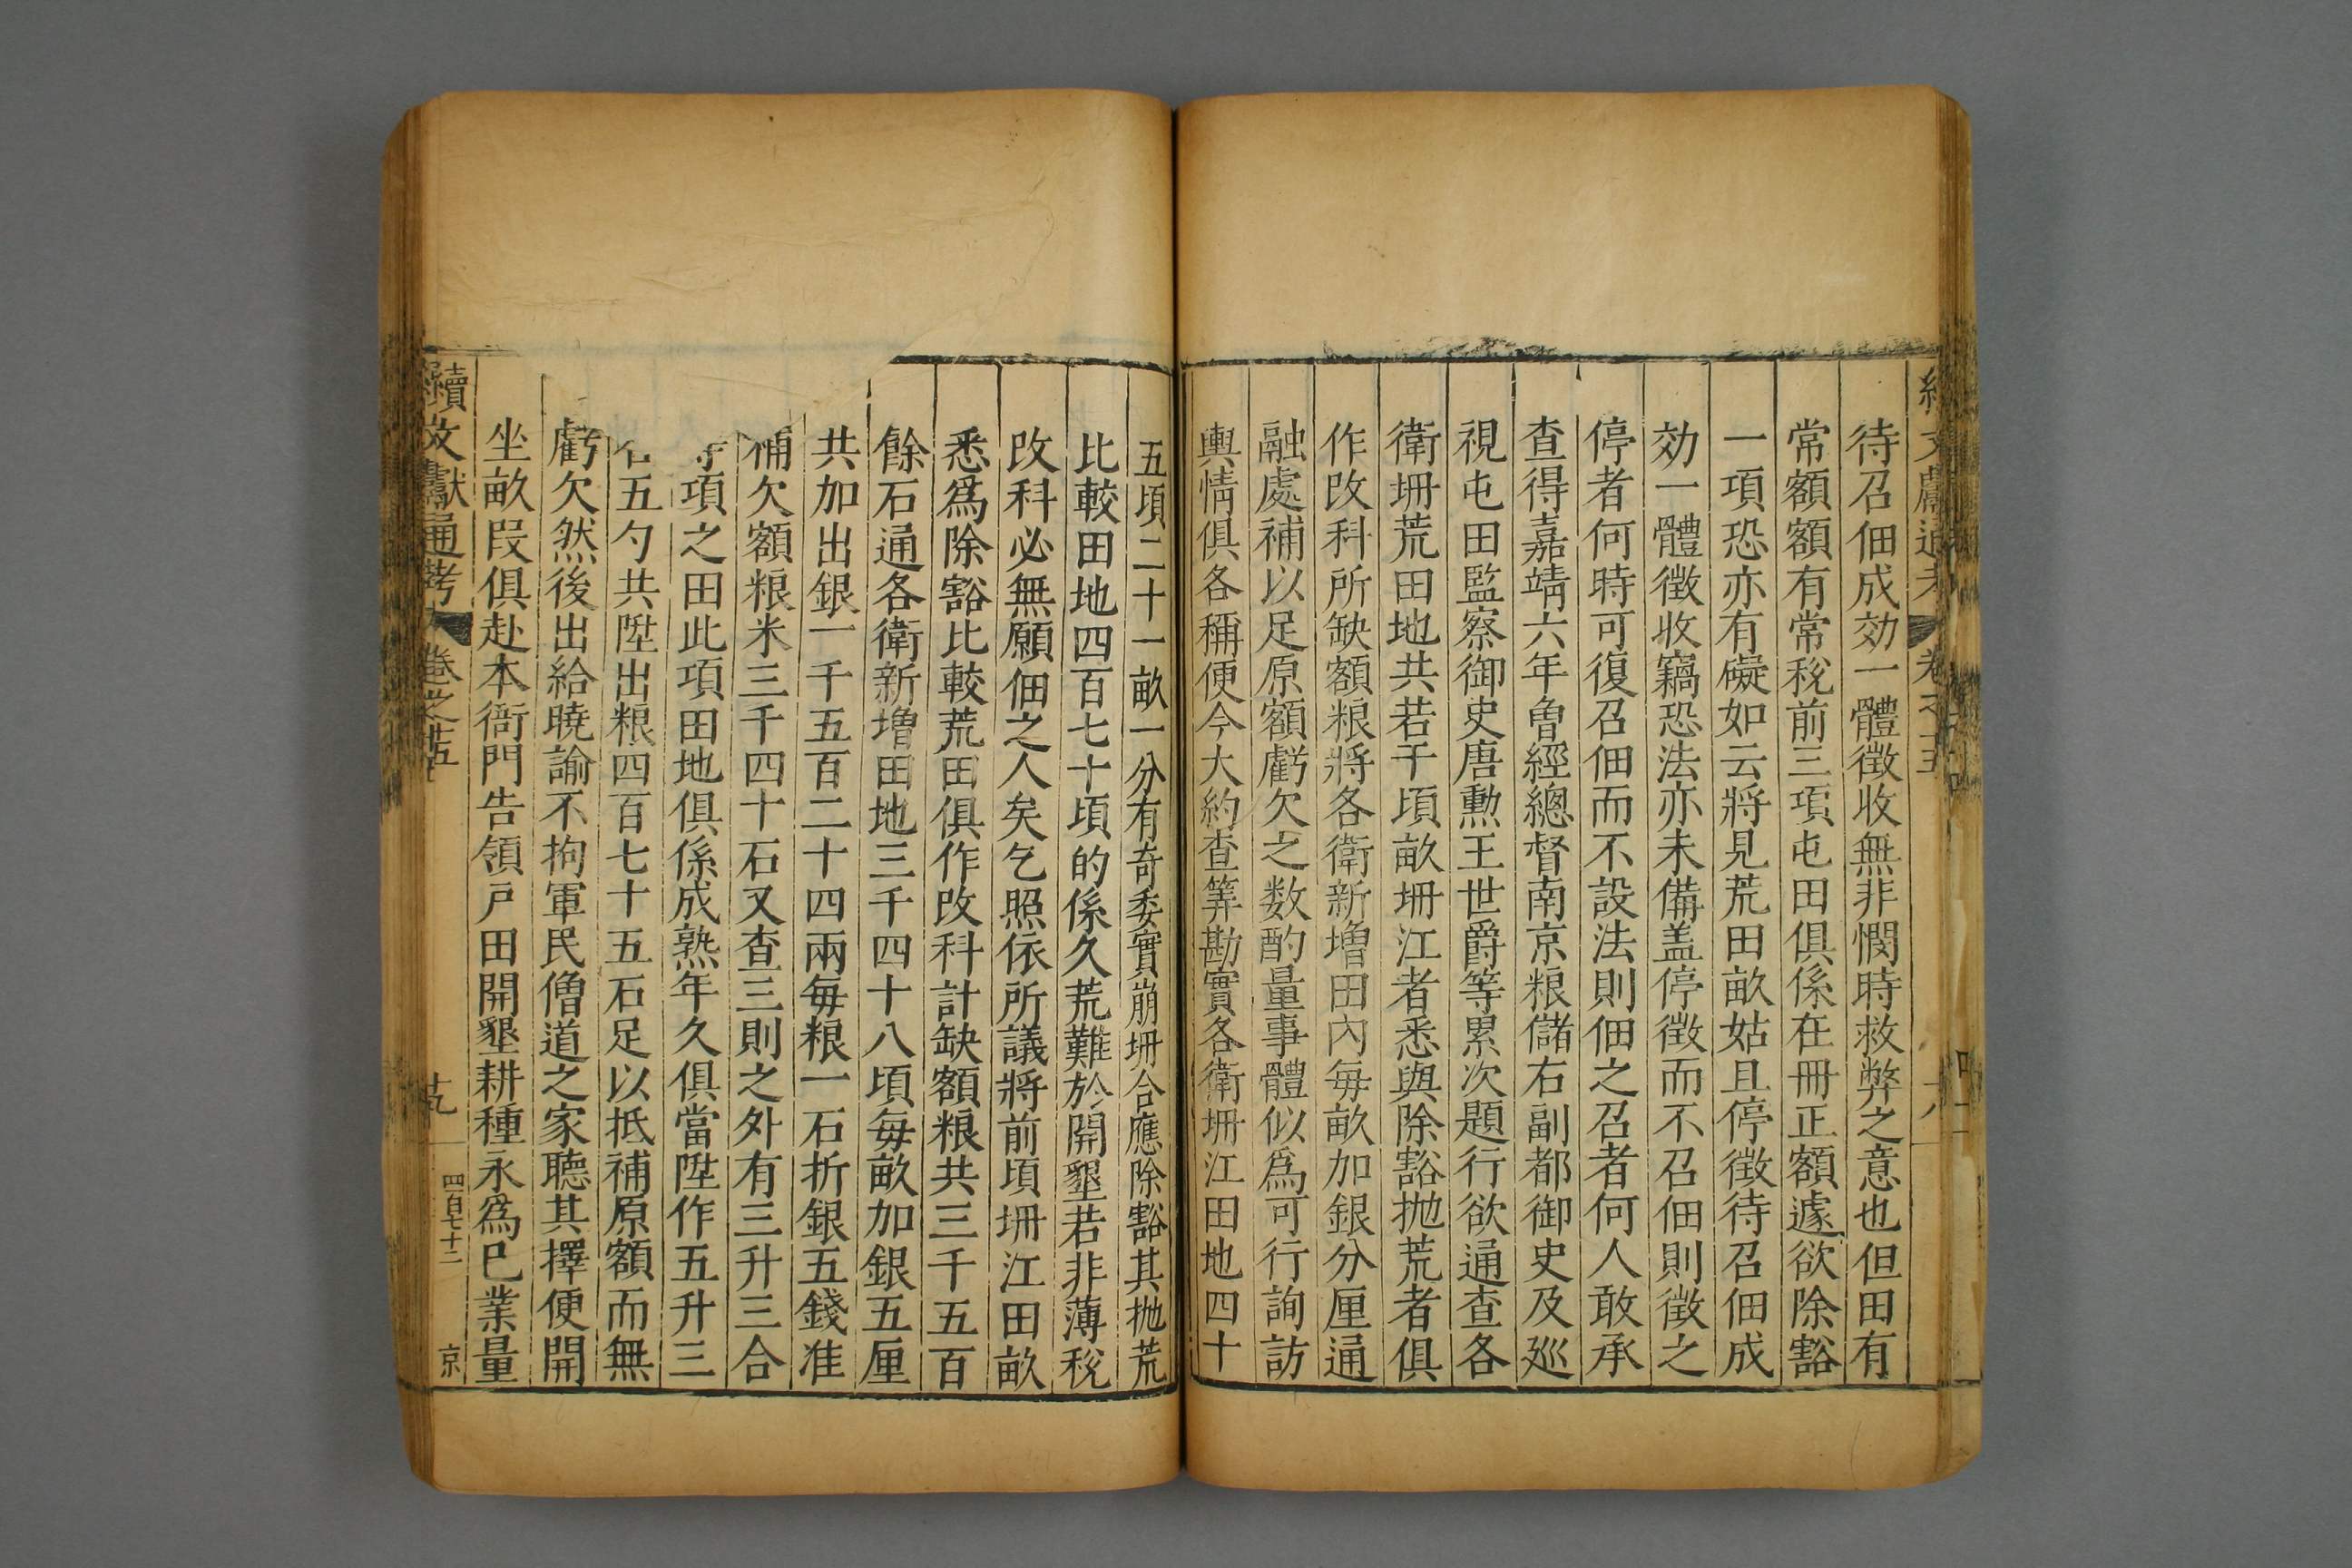 待召佃成効一體徵收無非憫時救弊之意也但田有
常額額有常稅前三項屯田俱係在冊正額遽欲除豁
一項恐亦有礙如云將見荒田畝姑且停徵待召佃成
効一體徵收竊恐法亦未備盖停徵而不召佃則徵之
停者何時可復召佃而不設法則佃之召者何人敢承
查得嘉靖六年魯經總督南京粮儲右副都御史及廵
視屯田監察御史唐勲王世爵等累次題行欲通查各
衛坍荒田地共若干頃畝坍江者悉與除豁抛荒者俱
作改科所缺額粮將各衛新增田內每畝加銀分厘通
融處補以足原額虧欠之数酌量事體似爲可行詢訪
輿情俱各稱便今大約查筭勘實各衛坍江田地四十
五頃二十一畝一分有奇委實崩坍合應除豁其抛荒
比較田地四百七十頃的係久荒難於開墾若非薄稅
改科必無願佃之人矣乞照依所議將前項坍江田畝
悉爲除豁比較荒田俱作改科計缺額粮共三千五百
餘石通各衛新增田地三千四十八頃每畝加銀五厘
共加出銀一千五百二十四兩每粮一石折銀五錢准
補欠額粮米三千四十石又查三則之外有三升三合
項之田此項田地俱係成熟年久俱當陞作五升三
五勺共陞出粮四百七十五石足以抵補原額而無
虧欠然後出給曉諭不拘軍民僧道之家聽其擇便開
坐畝叚俱赴本衙門告領戶田開墾耕種永爲已業量
續文獻通考 卷之十五 十九 四百七十二 京